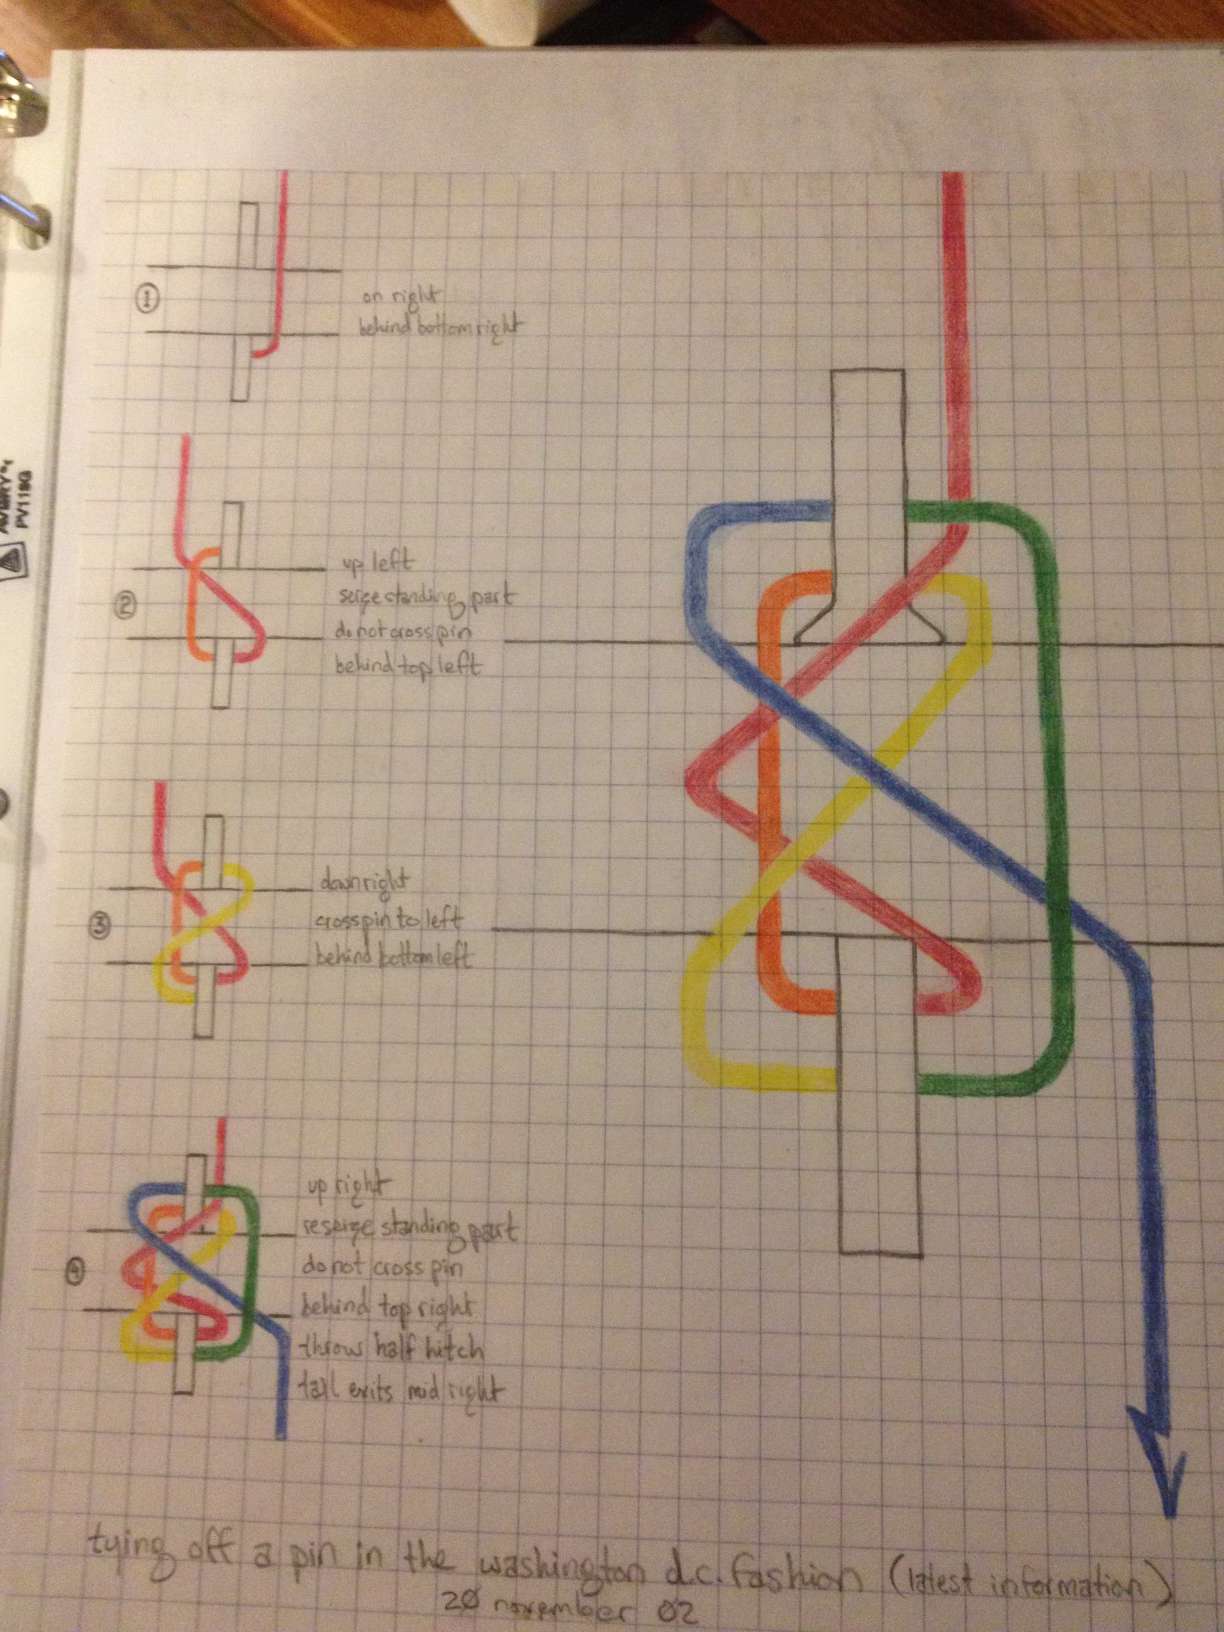 ①
on right
behind bottom right
②
up left
seize standing part
do not cross pin
behind top left
③
down right
cross pin to left
behind bottom left
④
up right
reseize standing part
do not cross pin
behind top right
throw half hitch
tail exits mid right
tying off a pin in the washington d.c. fashion (latest information)
20 november 02
AVERY
PV119G